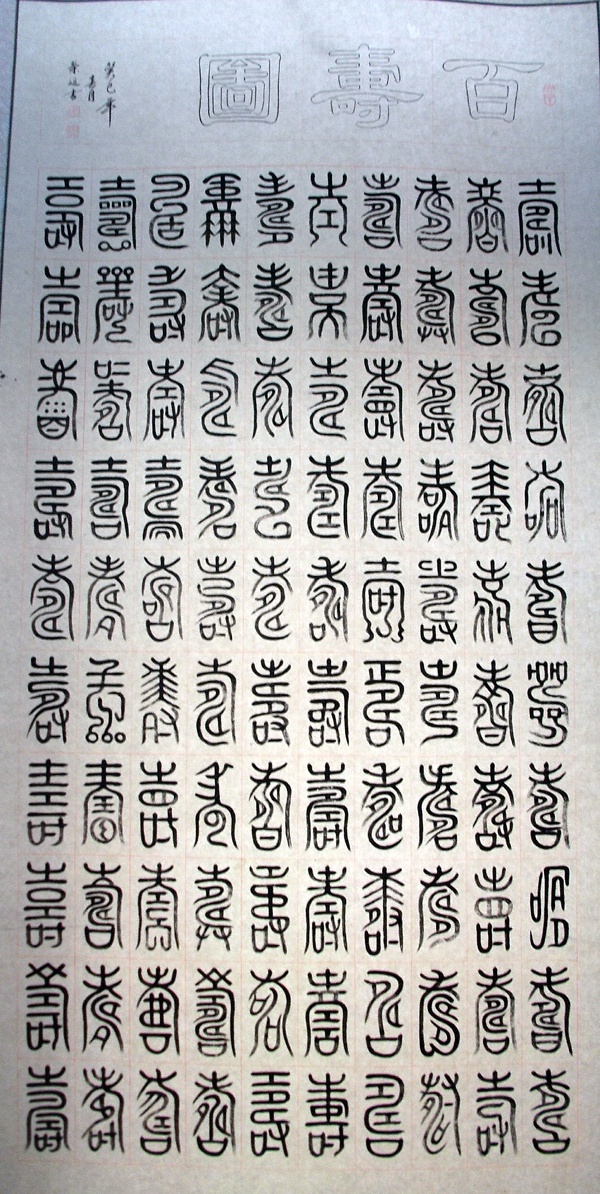 百壽圖
壽壽壽壽壽壽壽壽壽壽
壽壽壽壽壽壽壽壽壽壽
壽壽壽壽壽壽壽壽壽壽
壽壽壽壽壽壽壽壽壽壽
壽壽壽壽壽壽壽壽壽壽
壽壽壽壽壽壽壽壽壽壽
壽壽壽壽壽壽壽壽壽壽
壽壽壽壽壽壽壽壽壽壽
壽壽壽壽壽壽壽壽壽壽
壽壽壽壽壽壽壽壽壽壽
癸巳年
春月